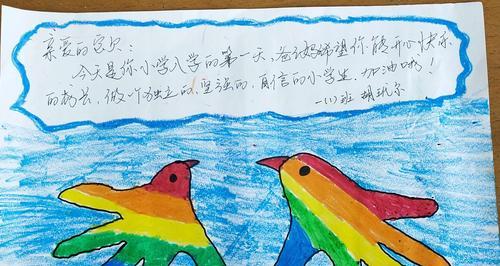 亲爱的宝贝:
今天是你小学入学的第一天,爸爸妈妈希望你能开心快乐
的成长,做个独立的、坚强的、自信的小学生,加油哦!
一(1)班 胡